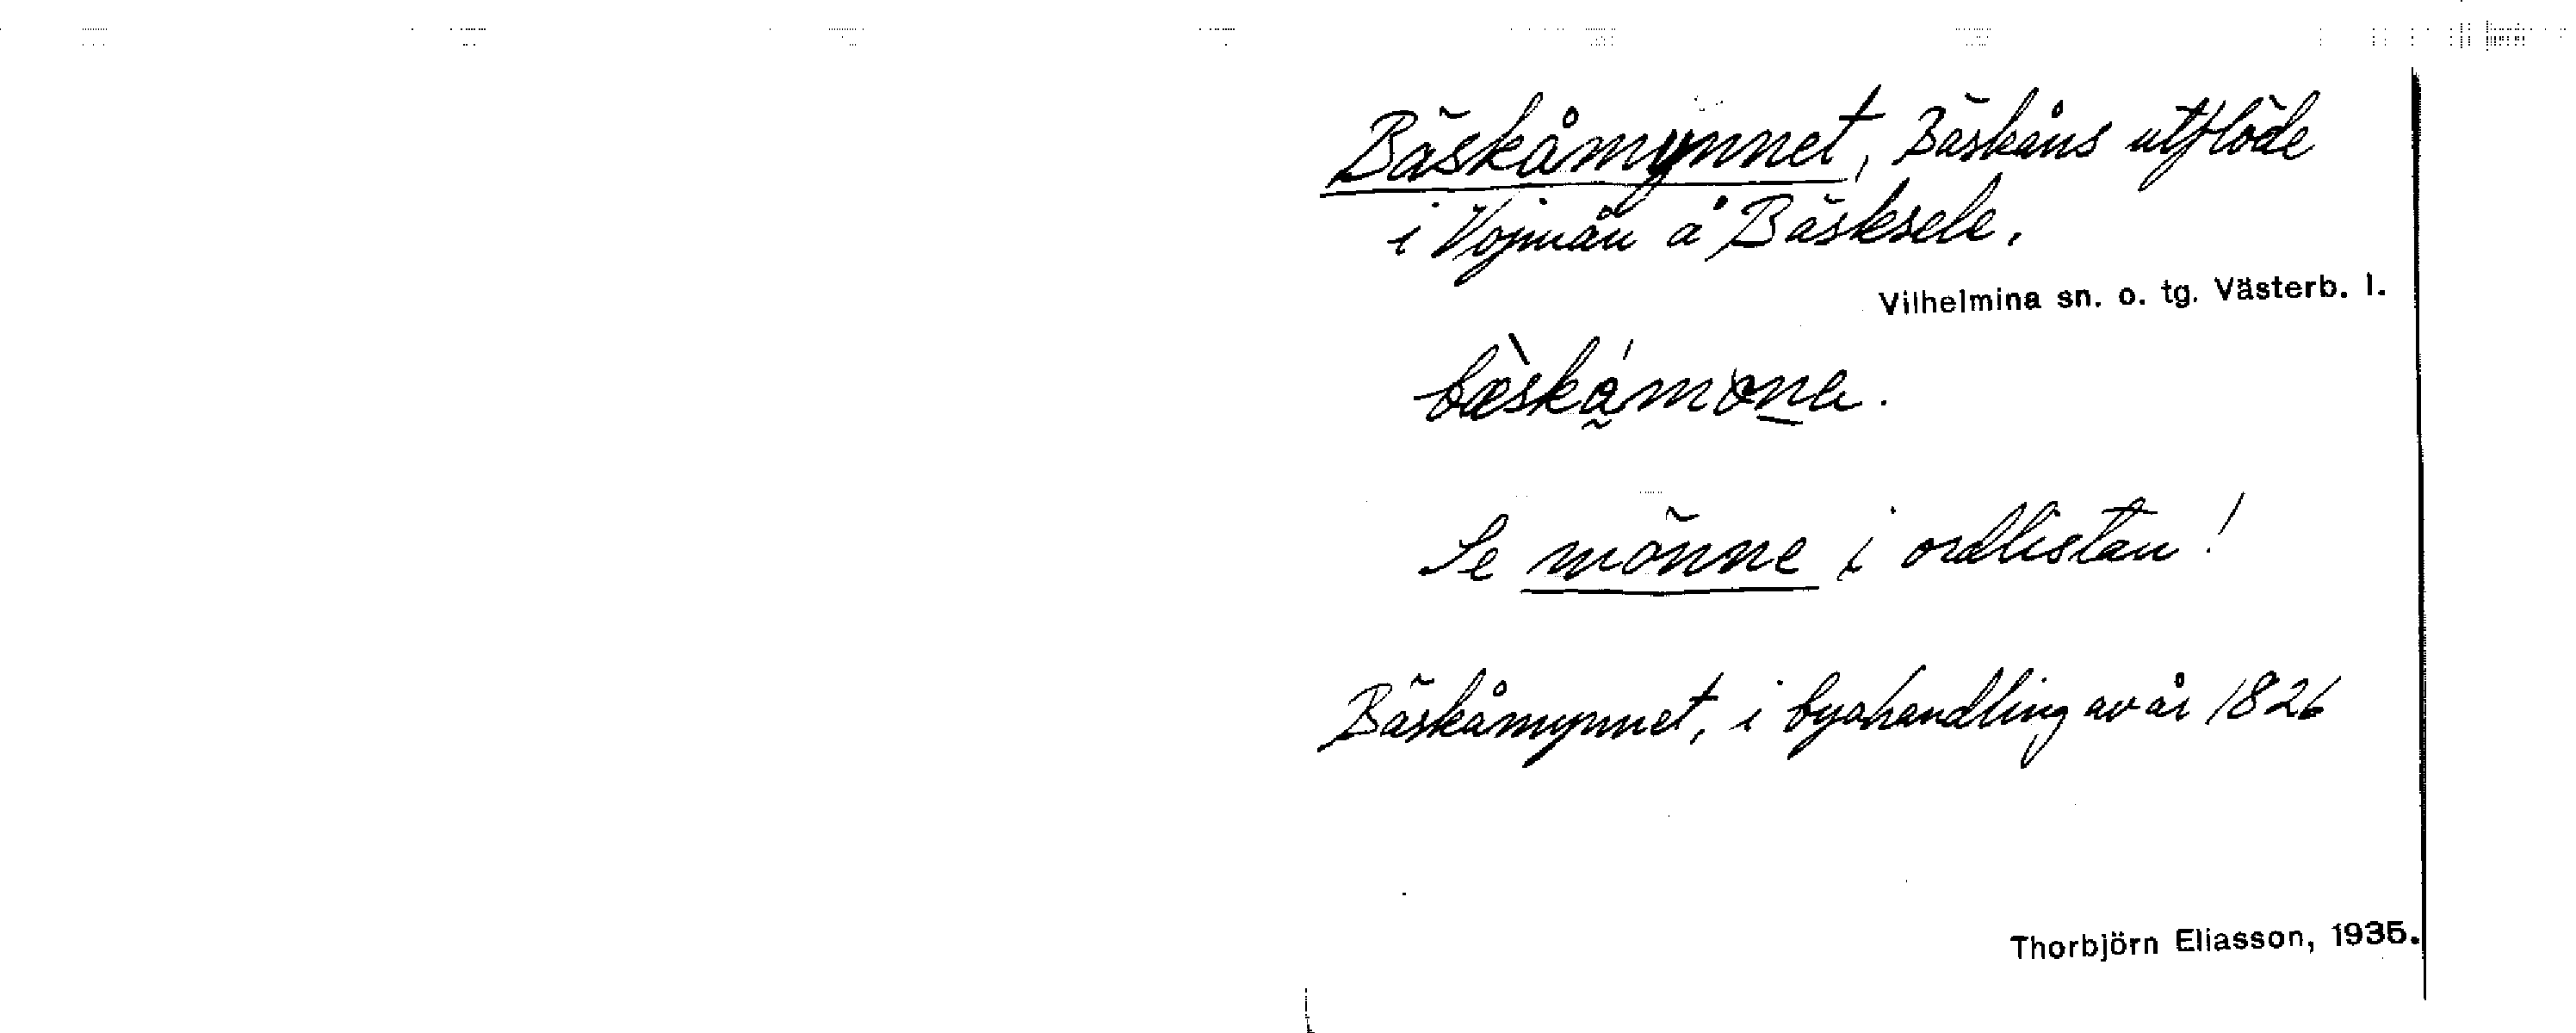 Bäskåmynnet, Bäskåns utflöde
i Vojmån å Bäsksele.
Vilhelmina sn. o. tg. Västerb. l.
bæ̀skǻmøne.
Se mönne i ordlistan!
Bäskåmynnet, i byahandling av år 1826
Thorbjörn Eliasson, 1935.